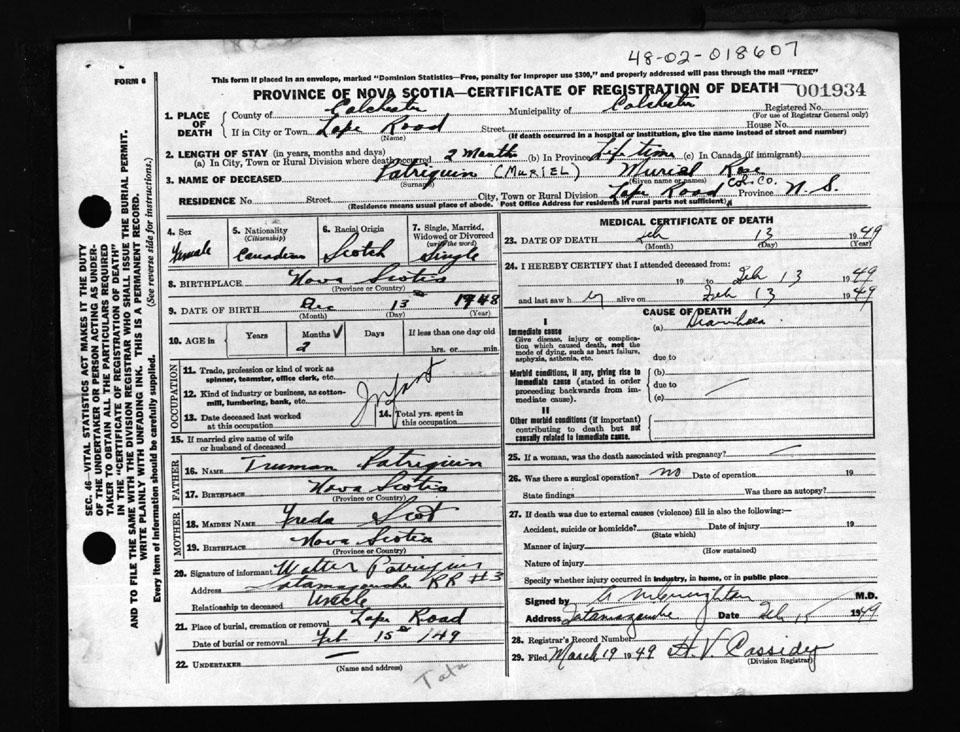 48-02-018607
FORM 6
This form if placed in an envelope, marked "Dominion Statistics—Free, penalty for improper use $300," and properly addressed will pass through the mail "FREE"
PROVINCE OF NOVA SCOTIA—CERTIFICATE OF REGISTRATION OF DEATH 001934
1. PLACE OF DEATH
County of Colchester Municipality of Colchester Registered No.
(For use of Registrar General only)
If in City or Town Road Street House No.
(Name) (If death occurred in a hospital or institution, give the name instead of street and number)
2. LENGTH OF STAY (in years, months and days)
(a) In City, Town or Rural Division where death occurred 2 Months (b) In Province Life time (c) In Canada (if immigrant)
3. NAME OF DECEASED Patriquin (MURIEL) Muriel Rae
(Surname) (Given name or names)
RESIDENCE No. Street City, Town or Rural Division Road Col. Co. Province N. S.
(Residence means usual place of abode. Post Office Address for residents in rural parts not sufficient)
4. Sex Female
5. Nationality (Citizenship) Canadian
6. Racial Origin Scotch
7. Single, Married, Widowed or Divorced (write the word) Single
8. BIRTHPLACE Nova Scotia
(Province or Country)
9. DATE OF BIRTH Dec 13 1948
(Month) (Day) (Year)
10. AGE in Years Months Days If less than one day old
2 hrs. or min.
OCCUPATION
11. Trade, profession or kind of work as spinner, teamster, office clerk, etc.
12. Kind of industry or business, as cotton-mill, lumbering, bank, etc.
Infant
13. Date deceased last worked at this occupation
14. Total yrs. spent in this occupation
15. If married give name of wife or husband of deceased
FATHER
16. NAME Truman Patriquin
17. BIRTHPLACE Nova Scotia
(Province or Country)
MOTHER
18. MAIDEN NAME Freda Scot
19. BIRTHPLACE Nova Scotia
(Province or Country)
20. Signature of informant Walter Patriquin
Address Tatamagouche RR #3
Relationship to deceased Uncle
21. Place of burial, cremation or removal Road
Date of burial or removal Feb 15 1949
22. UNDERTAKER
(Name and address)
Tata
MEDICAL CERTIFICATE OF DEATH
23. DATE OF DEATH Feb 13 1949
(Month) (Day) (Year)
24. I HEREBY CERTIFY that I attended deceased from:
19 to Feb 13 1949
and last saw h er alive on Feb 13 1949
CAUSE OF DEATH
I
Immediate cause (a) Diarrhoea
Give disease, injury or complication which caused death, not the mode of dying, such as heart failure, asphyxia, asthenia, etc.
due to
Morbid conditions, if any, giving rise to immediate cause (stated in order proceeding backwards from immediate cause).
(b)
due to
(c)
II
Other morbid conditions (if important) contributing to death but not causally related to immediate cause.
25. If a woman, was the death associated with pregnancy?
26. Was there a surgical operation? no Date of operation 19
State findings Was there an autopsy?
27. If death was due to external causes (violence) fill in also the following:—
Accident, suicide or homicide? Date of injury 19
(State which)
Manner of injury
(How sustained)
Nature of injury
Specify whether injury occurred in industry, in home, or in public place
Signed by M.D.
Address Tatamagouche Date Feb 1949
28. Registrar's Record Number
29. Filed March 19 1949 H. V. Cassidy
(Division Registrar)
SEC. 46—VITAL STATISTICS ACT MAKES IT THE DUTY
OF THE UNDERTAKER OR PERSON ACTING AS UNDERTAKER TO OBTAIN ALL THE PARTICULARS REQUIRED
IN THE "CERTIFICATE OF REGISTRATION OF DEATH"
AND TO FILE THE SAME WITH THE DIVISION REGISTRAR WHO SHALL ISSUE THE BURIAL PERMIT.
WRITE PLAINLY WITH UNFADING INK. THIS IS A PERMANENT RECORD.
Every Item of Information should be carefully supplied. (See reverse side for instructions.)